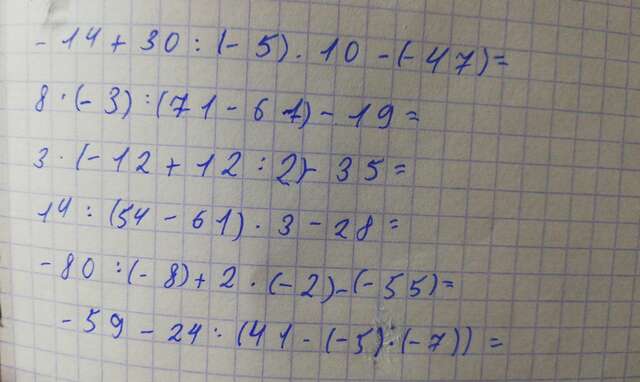 - 14 + 30 : (- 5) · 10 - (- 47) =
8 · (- 3) : (71 - 61) - 19 =
3 · (- 12 + 12 : 2) - 35 =
14 : (54 - 61) · 3 - 28 =
- 80 : (- 8) + 2 · (- 2) - (- 55) =
- 59 - 24 : (41 - (- 5) · (- 7)) =